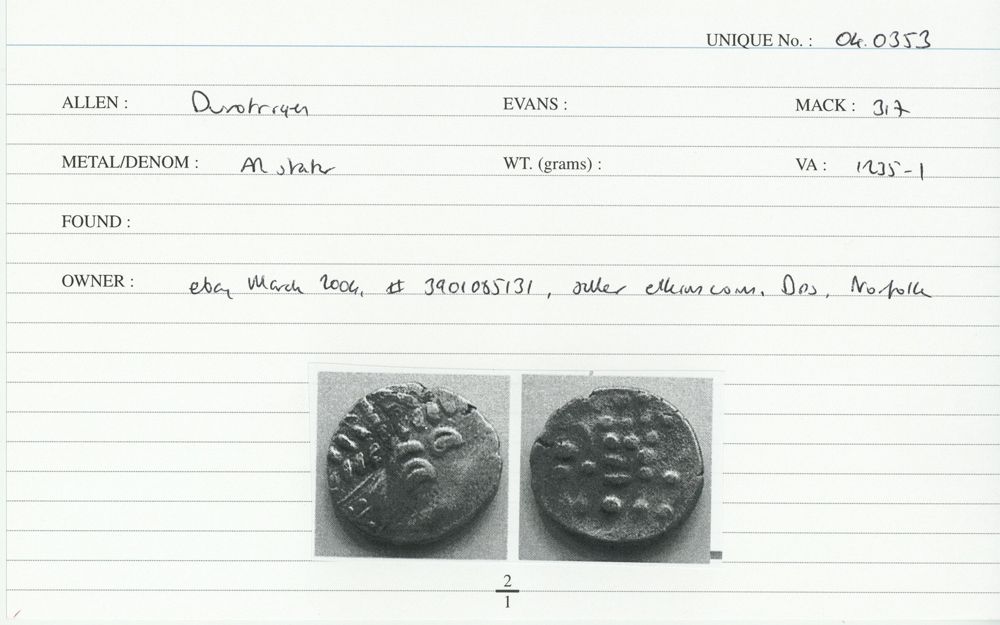 UNIQUE No. : 04.0353
ALLEN : Durotriges EVANS : MACK : 317
METAL/DENOM : AR stater WT. (grams) : VA : 1235-1
FOUND :
OWNER : ebay March 2004, # 3901085131, seller elkinscoins, Diss, Norfolk
2
1